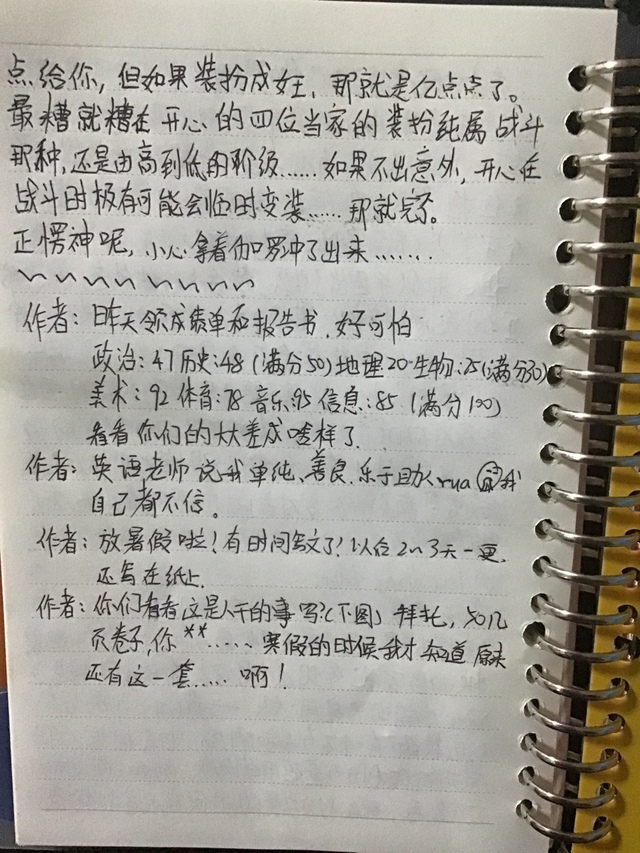 点给你，但如果装扮成女王，那就是亿点点了。
最糟就糟在开心的四位当家的装扮纯属战斗
那种，还是由高到低的阶级……如果不出意外，开心在
战斗时极有可能会临时变装……那就完了。
正愣神呢，小心拿着伽罗冲了出来……
～～～～～～～～
作者：昨天领成绩单和报告书，好可怕
政治：47 历史：48（满分50）地理20 生物：25（满分30）
美术：92 体育：78 音乐95 信息：85（满分100）
看看你们的大大差成啥样了
作者：英语老师说我单纯、善良、乐于助人 rua 我
自己都不信。
作者：放暑假啦！有时间写文了！以后2～3天一更，
还写在纸上。
作者：你们看看这是人干的事吗？（下图）拜托，
页卷子，你**……寒假的时候我才知道原来
还有这一套……啊！